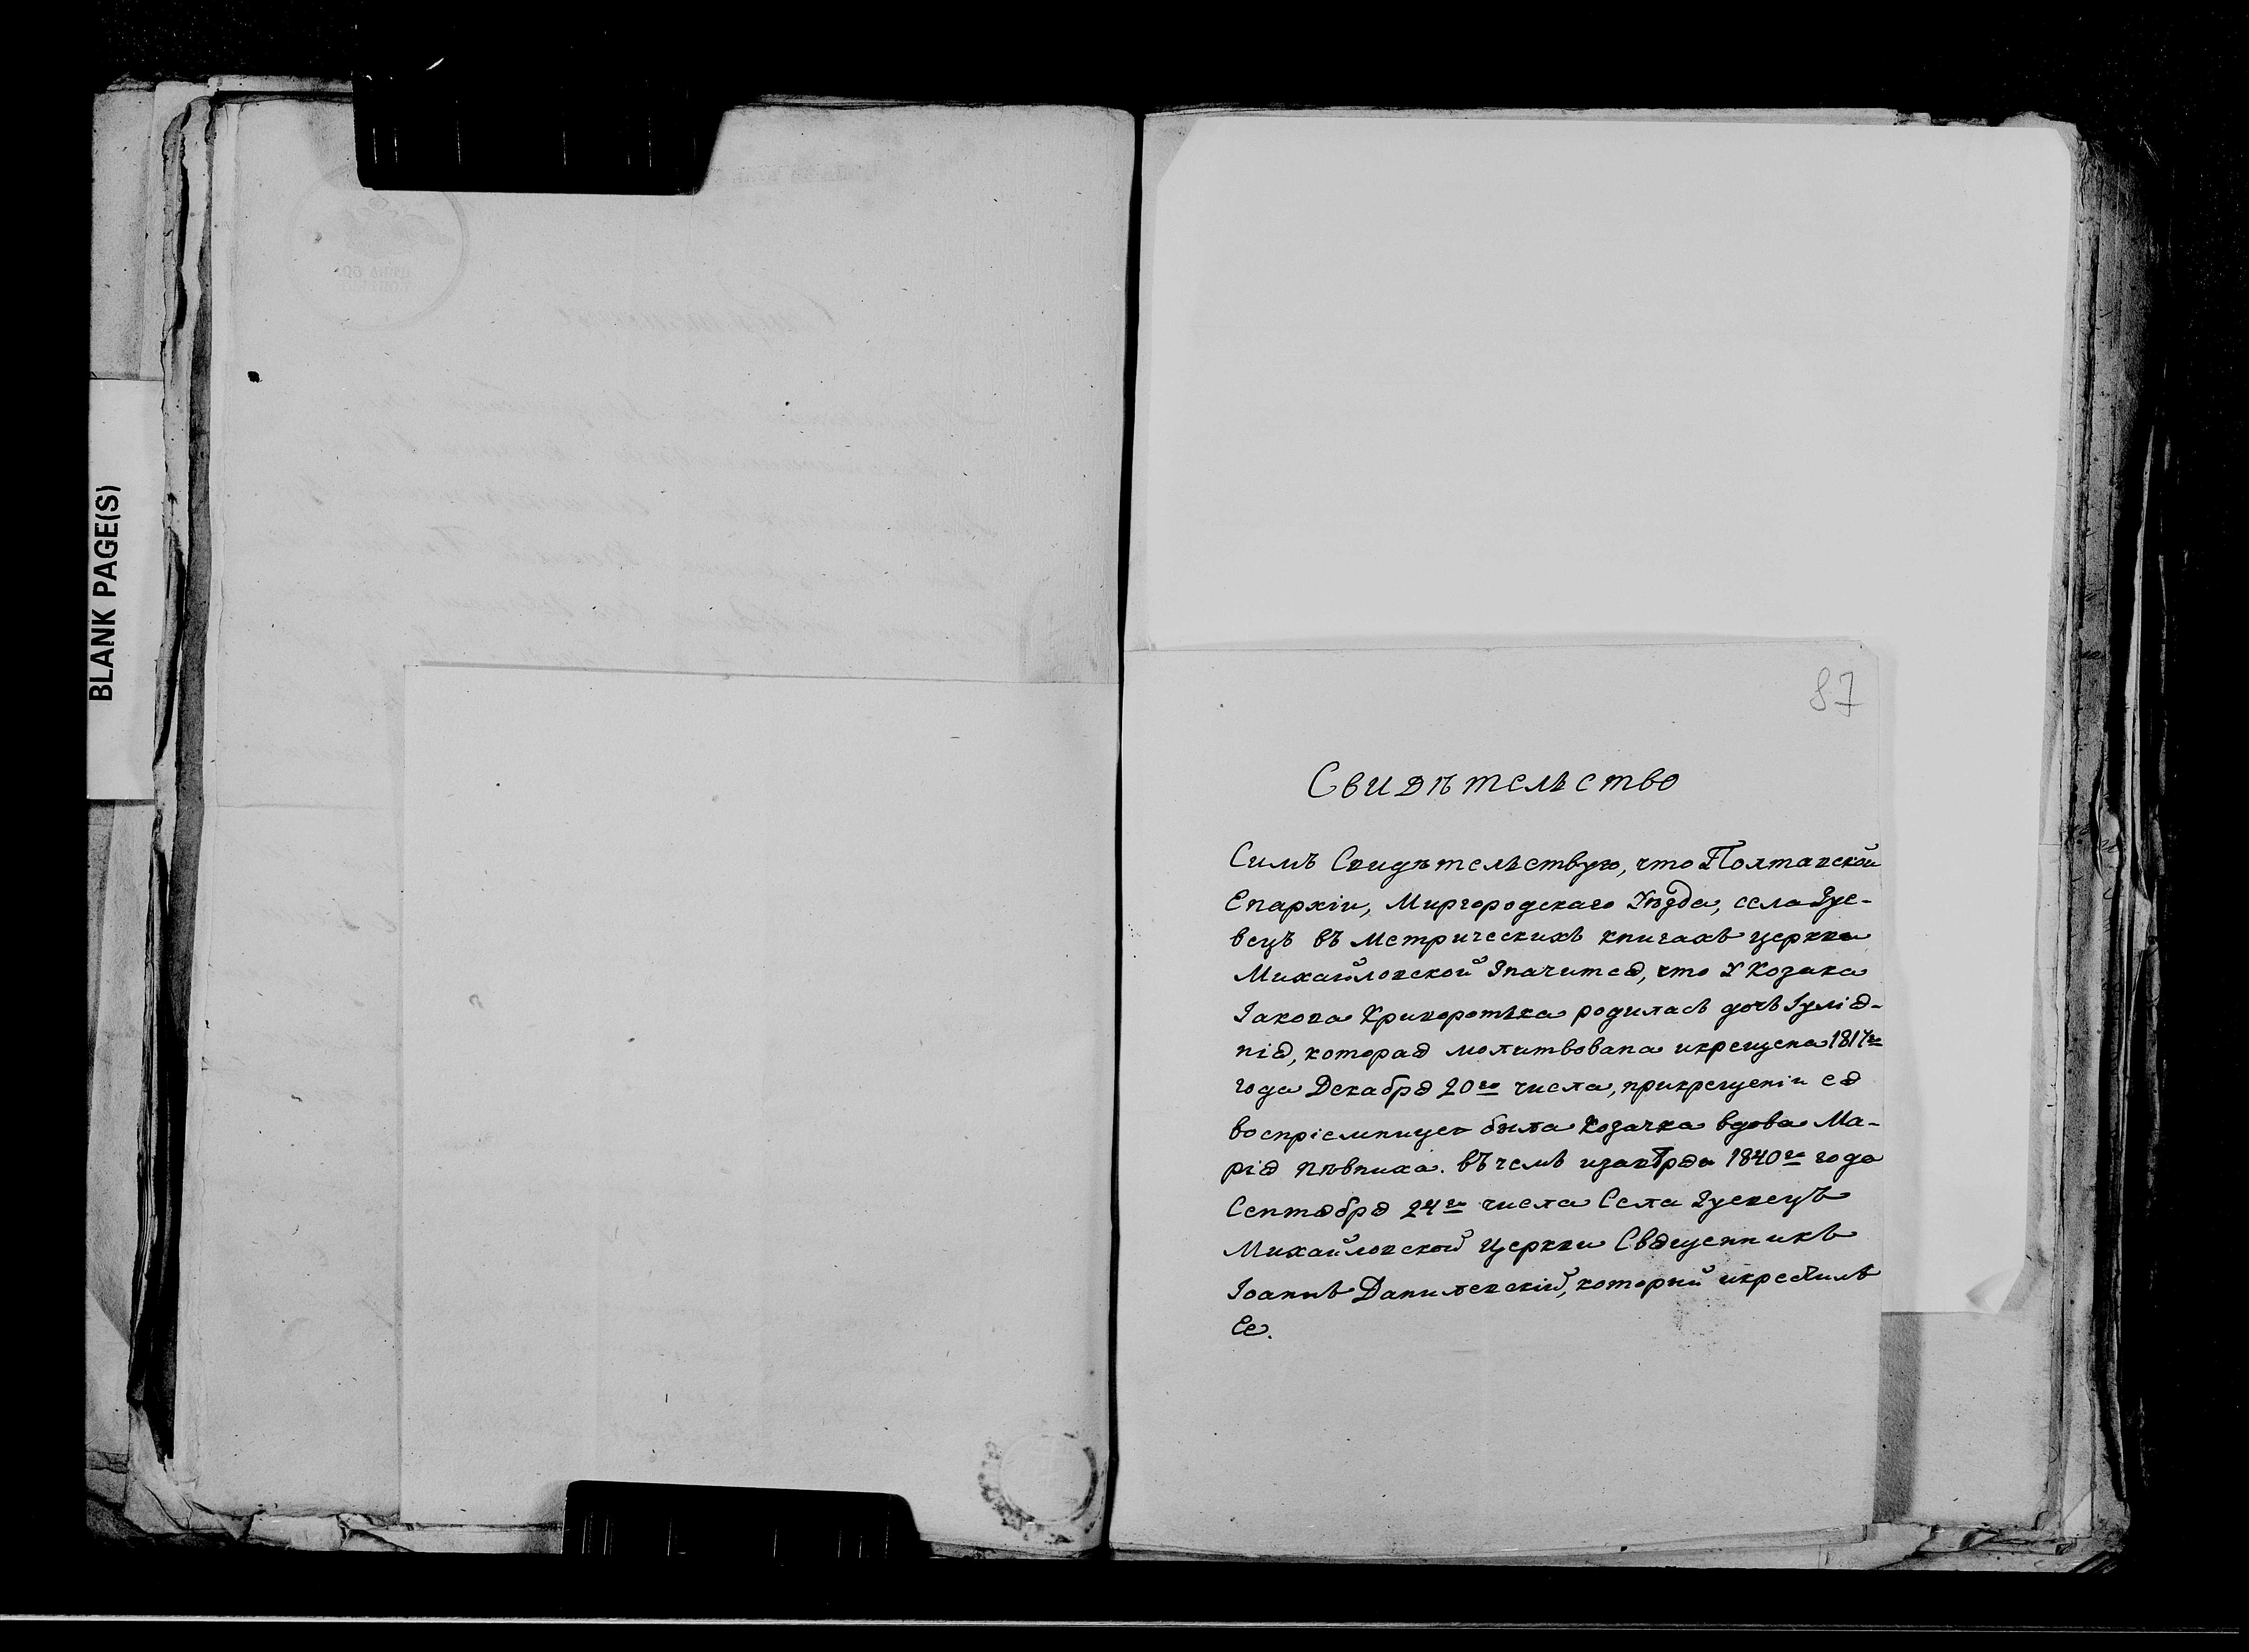 BLANK PAGE(S)
87
Свидѣтельство
Симъ Свидѣтельствую, что Полтавской
Епархіи, Миргородскаго Уѣзда, села Зуе-
вецъ въ Метрическихъ книгахъ церкви
Михайловской Значится, что У Козака
Іакова Криворотька родилась дочь Іулія-
нія, которая молитвована икрещена 1817го
года Декабря 20го числа, прикрещеніи ея
воспріемницею была Козачка вдова Ма-
рія Пѣвниха. въ чемъ изавѣряю 1840го года
Сентября 24го числа Села Зуевецъ
Михайловской Церкви Священникъ
Іоаннъ Данилевскій, который икрестилъ
Ее.